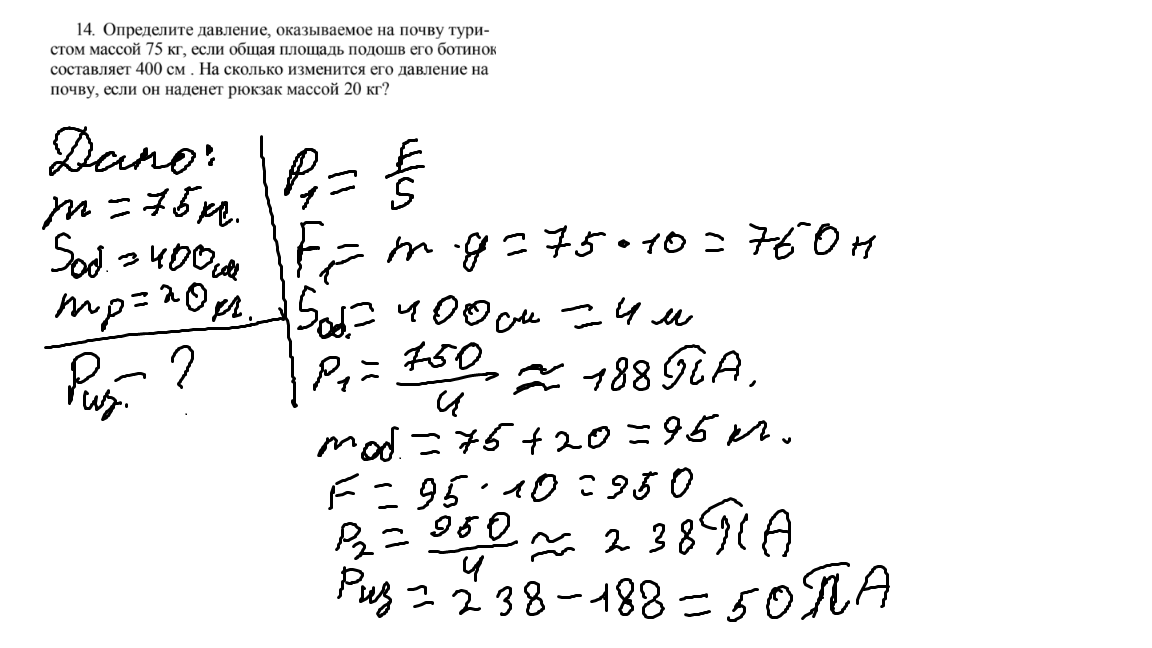 14. Определите давление, оказываемое на почву тури-
стом массой 75 кг, если общая площадь подошв его ботинок
составляет 400 см . На сколько изменится его давление на
почву, если он наденет рюкзак массой 20 кг?
Дано:
m = 75 кг.
Sоб. = 400 см
mр = 20 кг.
Pиз. – ?
P₁ = F/S
F₁ = m · g = 75 · 10 = 750 н
Sоб. = 400 см = 4 м
P₁ = 750/4 ≈ 188 ПА.
mоб. = 75 + 20 = 95 кг.
F = 95 · 10 = 950
P₂ = 950/4 ≈ 238 ПА
Pиз = 238 – 188 = 50 ПА